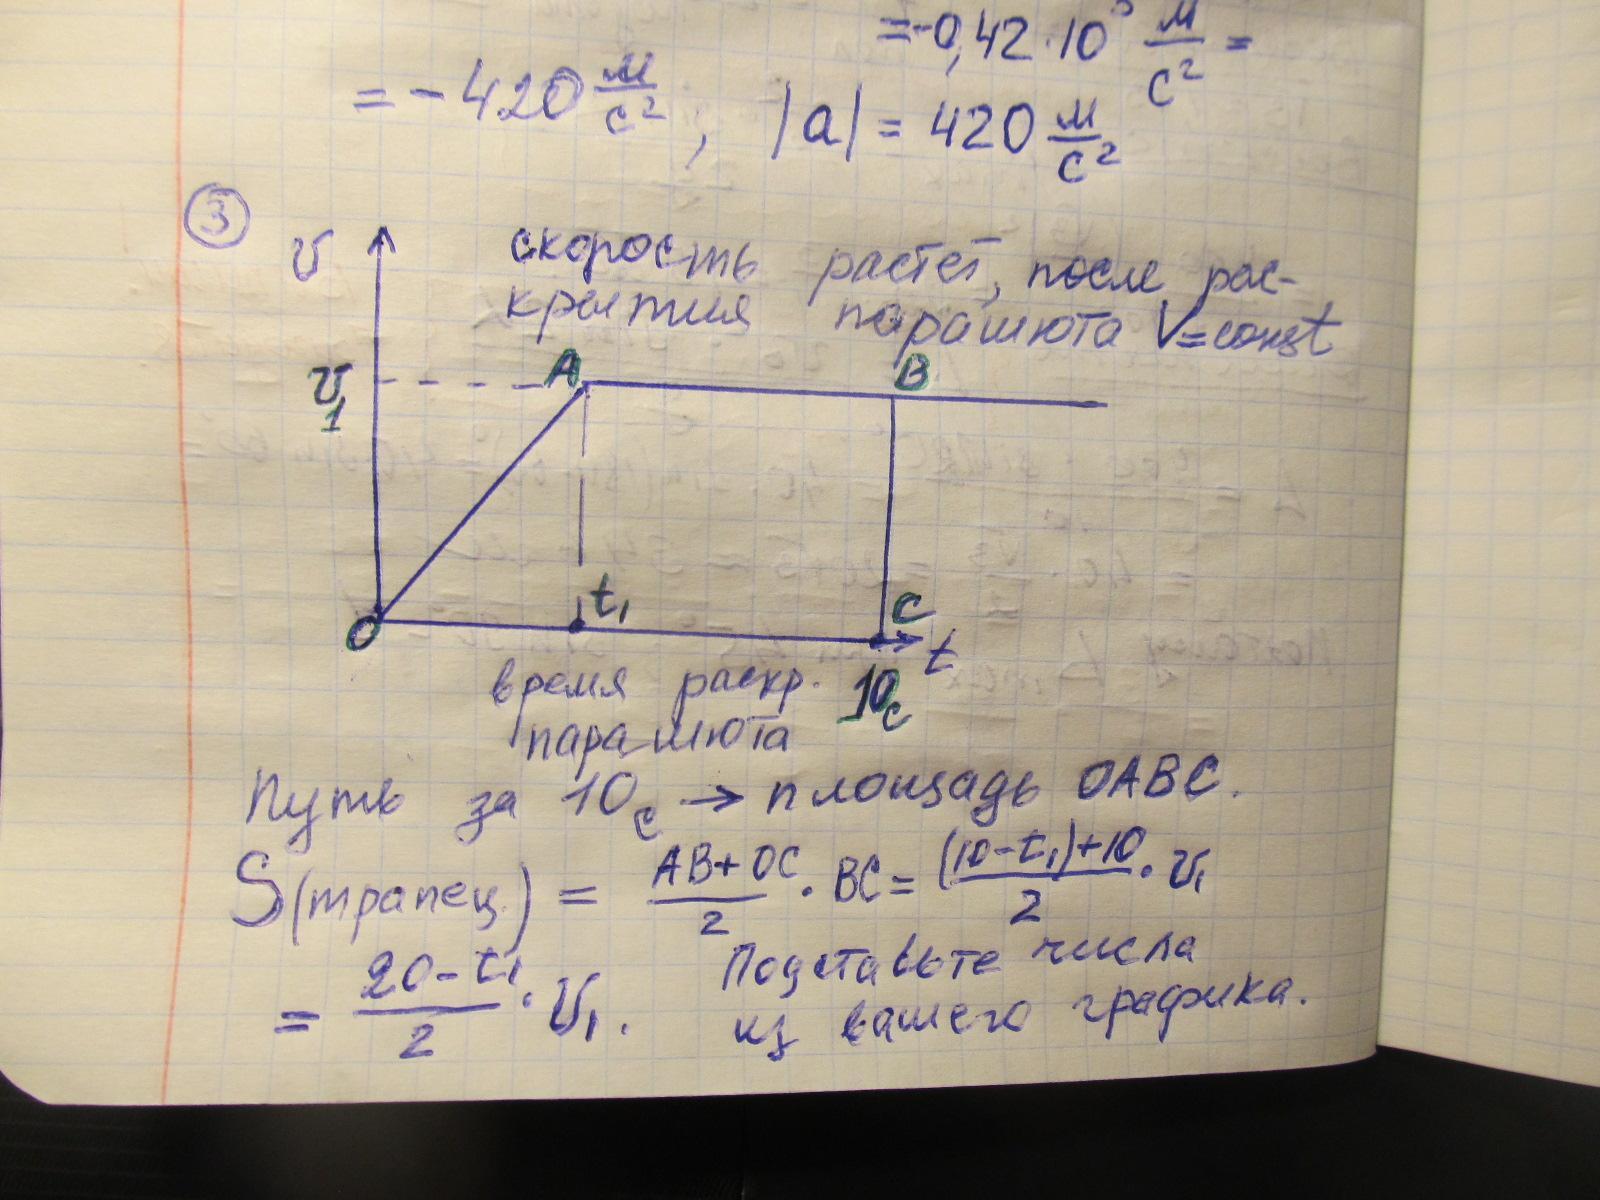 =-0,42·10³ м/с² =
= -420 м/с², |a| = 420 м/с²
3
v
скорость растет, после рас-
крытия парашюта V=const
v₁ A B
O t₁ C t
время раскр. 10с
парашюта
Путь за 10с → площадь OABC.
S(трапец.) = (AB+OC)/2 · BC = ((10-t₁)+10)/2 · v₁
= (20-t₁)/2 · v₁. Подставьте числа
из вашего графика.